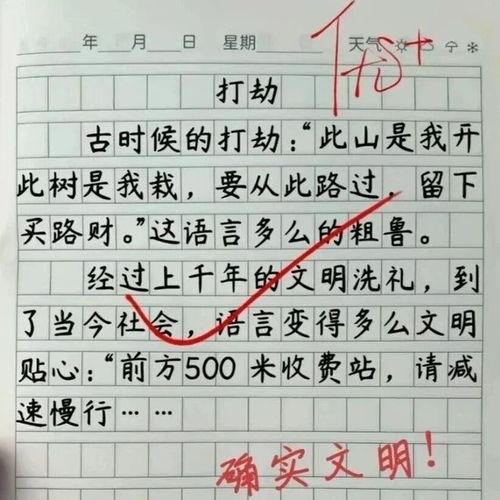 年 月 日 星期 天气
优+
打劫
古时候的打劫：“此山是我开
此树是我栽，要从此路过，留下
买路财。”这语言多么的粗鲁。
经过上千年的文明洗礼，到
了当今社会，语言变得多么文明
贴心：“前方500米收费站，请减
速慢行……
确实文明！